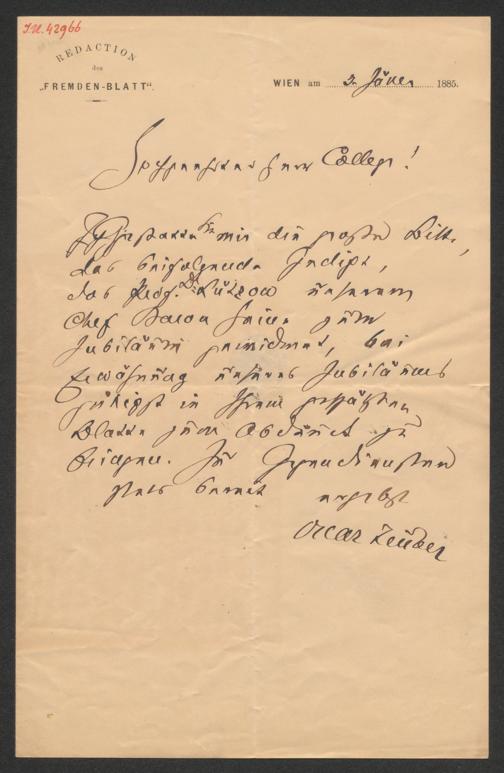 I.N. 42966
REDACTION
des
„FREMDEN-BLATT“.
WIEN am 2. Jäner 1885.
Hochgeehrter Herr College!
Gestatten Sie mir die große Bitte,
das beifolgende Gedicht,
das Prof. Dr. Lützow unserem
Chef Baron Heine zum
Jubiläum gewidmet, bei
Erwähnung unseres Jubiläums
gütigst in Ihrem geschätzten
Blatte zum Abdruck zu
bringen. Zu Gegendiensten
stets bereit ergebenst
Oscar Teuber